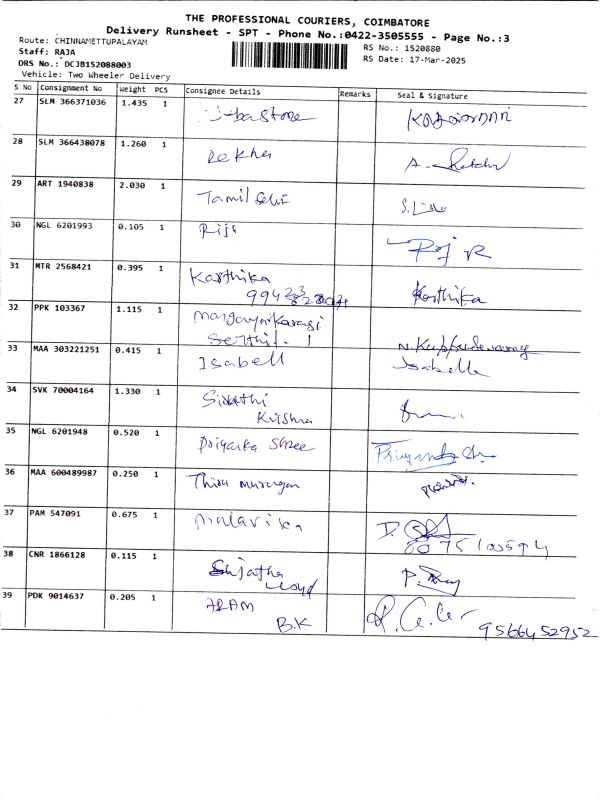 THE PROFESSIONAL COURIERS, COIMBATORE
Delivery Runsheet - SPT - Phone No.:0422-3505555 - Page No.:3
Route: CHINNAMETTUPALAYAM
RS No.: 1520880
Staff: RAJA
RS Date: 17-Mar-2025
DRS No.: DCJB152088003
Vehicle: Two Wheeler Delivery
S No Consignment No Weight PCS Consignee Details Remarks Seal & Signature
27 SLM 366371036 1.435 1
28 SLM 366438078 1.260 1 Rekha
29 ART 1940838 2.030 1 Tamil Selvi
30 NGL 6201993 0.105 1 Riji
31 MTR 2568421 0.395 1 Karthika Karthika
32 PPK 103367 1.115 1
33 MAA 303221251 0.415 1 Isabell Isabella
34 SVK 70004164 1.330 1
Krishna
35 NGL 6201948 0.520 1 Priyanka Shree
36 MAA 600489987 0.250 1 Thiru murugan
37 PAM 547091 0.675 1 malavika D.
38 CNR 1866128 0.115 1 Sujatha
39 PDK 9014637 0.205 1 ARAM
B.K 9566452952